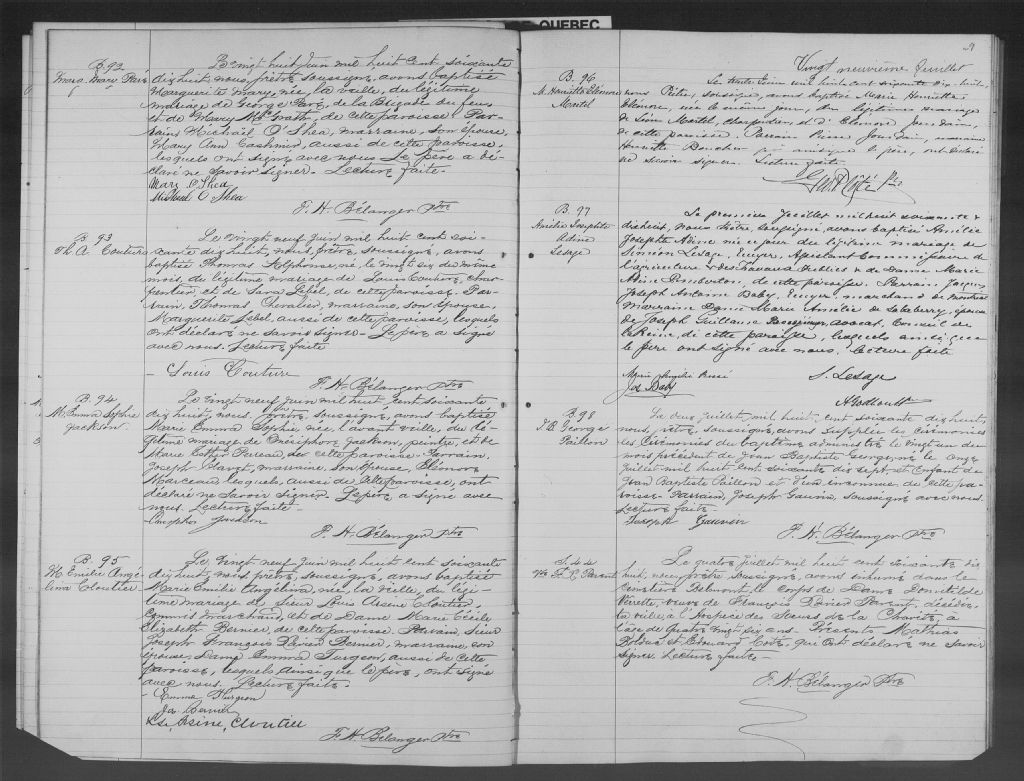 QUEBEC
B. 92
Marg. Mary Paré
Le vingt huit Juin mil huit cent soixante
dix huit nous, prêtre soussigné, avons baptisé
Marguerite Mary, née, la veille, du légitime
mariage de George Paré, de la Brigade du feu
et de Mary McGrath, de cette paroisse. Par-
rain Michaël O'Shea, marraine, son épouse,
Mary Ann Cashmir, aussi de cette paroisse,
lesquels ont signé avec nous. Le père a dé-
claré ne savoir signer. Lecture faite.
Mary O'Shea
Michael O'Shea
F. H. Bélanger Ptre
B. 93
Th. A. Couture
Le vingt neuf Juin mil huit cent soi-
xante dix huit, nous, prêtre, soussigné, avons
baptisé Thomas Alphonse, né, le vingt six du même
mois, du légitime mariage de Louis Couture, char-
pentier, et de Sara Lebel, de cette paroisse. Par-
rain, Thomas Chevalier, marraine, son épouse,
Marguerite Lebel, aussi de cette paroisse, lesquels
ont déclaré ne savoir signer. Le père a signé
avec nous. Lecture faite
Louis Couture
F. H. Bélanger Ptre
B. 94
M. Emma Sophie
Jackson
Le vingt neuf Juin mil huit cent soixante
dix huit, nous, prêtre, soussigné, avons baptisé
Marie Emma Sophie, née, l'avant veille, du lé-
gitime mariage de Onésiphore Jackson, peintre, et de
Marie Esther Pereau, de cette paroisse. Parrain,
Joseph marraine, son épouse, Eléonore
Marceau lesquels, aussi de cette paroisse, ont
déclaré ne savoir signer. Le père a signé avec
nous. Lecture faite
Jackson
F. H. Bélanger Ptre
B. 95
M. Emilie Angé-
lina Cloutier
Le vingt neuf Juin mil huit cent soixante
dix huit, nous, prêtre, soussigné, avons baptisé
Marie Emilie Angelina, née, la veille, du légi-
time mariage de Sieur Louis Arsène Cloutier,
Commis marchand, et de Dame Marie Cécile
Elizabeth Bernier, de cette paroisse. Parrain, Sieur
Joseph François Xavier Bernier, marraine, son
épouse, Dame Emma Turgeon, aussi de cette
paroisse, lesquels ainsi que le père, ont signé
avec nous. Lecture faite.
Emma Turgeon
Jos Bernier
Ls. Arsène Cloutier
F. H. Bélanger Ptre
Vingt neuvième feuillet
B. 96
M. Henriette Elénore
Martel
Le trente Juin mil huit cent soixante dix-huit,
nous Prêtre, soussigné, avons baptisé Marie Henriette
Elénore, née le même jour, du légitime mariage
de Martel, charpentier, et d'Elénore Jourdain,
de cette paroisse. Parrain Pierre Jourdain, marraine
Henriette Boucher qui ainsi que le père, ont déclaré
ne savoir signer. Lecture faite.
Ptre
B. 97
Amélie Josephte
Adine
Lesage
Le premier Juillet mil huit soixante &
dixhuit, nous Prêtre, soussigné, avons baptisé Amélie
Josephte Adine née ce jour du légitime mariage de
Siméon Lesage, Ecuyer, Assistant Commissaire de
l'agriculture & des Travaux Publics & de Dame Marie
de cette paroisse. Parrain Jacques
Joseph Antoine Baby, Ecuyer, marchand de Montréal
Marraine Dame Marie Amélie de Salaberry, épouse
de Joseph Guillaume avocat, Conseil de
la Reine, de cette paroisse, lesquels ainsi que
le père ont signé avec nous. Lecture faite
Jos Baby
S. Lesage
B. 98
J. B. George
Paillon
Le deux Juillet, mil huit, cent soixante dix huit,
nous, prêtre, soussigné, avons suppléé les Cérémonies
les Cérémonies du baptême administré le vingt un du
mois précédent de Jean Baptiste George, né le onze
Juillet mil huit cent soixante dix sept, et Enfant de
Jean Baptiste Paillon et d'une inconnue de cette pa-
roisse. Parrain, Joseph Gauvin, soussigné avec nous.
Lecture faite
Joseph Gauvin
F. H. Bélanger Ptre
S. 44
Vve F. X. Parent
Le quatre Juillet mil huit cent soixante dix
huit, nous, prêtre, soussigné, avons inhumé dans le
Cimetière Belmont, le Corps de Dame Domitilde
Verrette, veuve de François Xavier Parent, décédée,
la veille, à l'hospice des Soeurs de la Charité, à
l'âge de quatre vingt six ans. Présents Mathias
et Edouard Côté, qui ont déclaré ne savoir
signer. Lecture faite
F. H. Bélanger Ptre